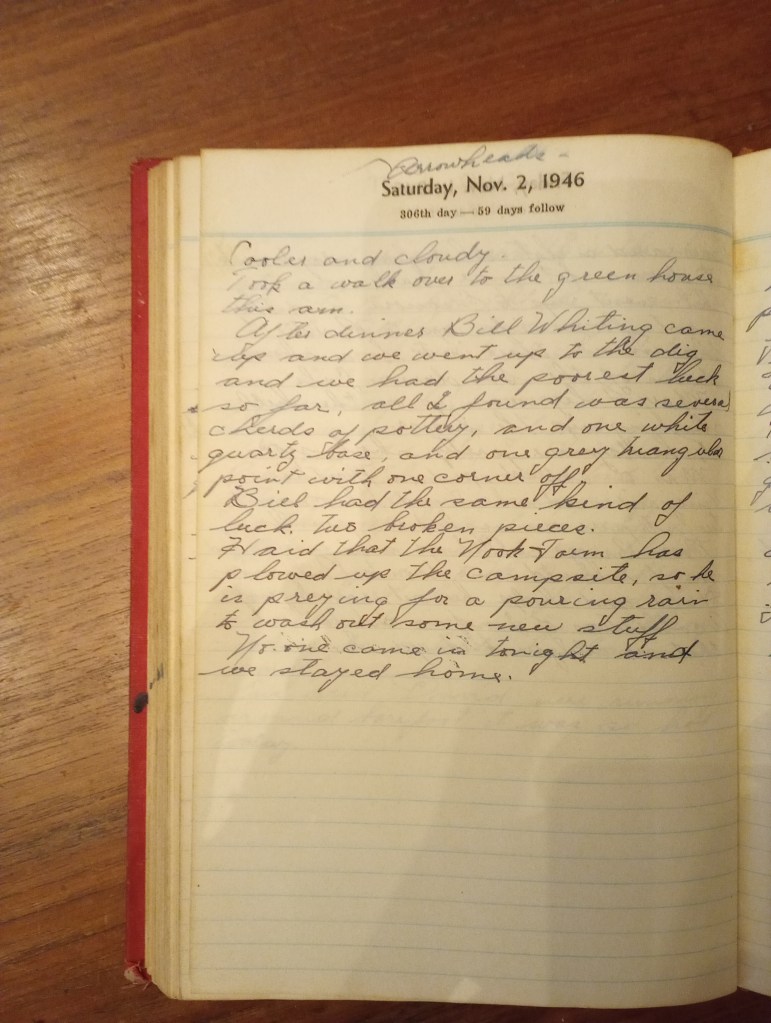 Arrowheads -
Saturday, Nov. 2, 1946
306th day — 59 days follow
Cooler and cloudy.
Took a walk over to the green house
this am.
After dinner Bill Whiting came
up and we went up to the dig
and we had the poorest luck
so far, all I found was several
cherds of pottery, and one white
quartz base, and one grey triangular
point with one corner off.
Bill had the same kind of
luck. two broken pieces.
said that the Nook Farm has
plowed up the campsite, so he
is preying for a pouring rain
to wash out some new stuff
No one came in tonight and
we stayed home.